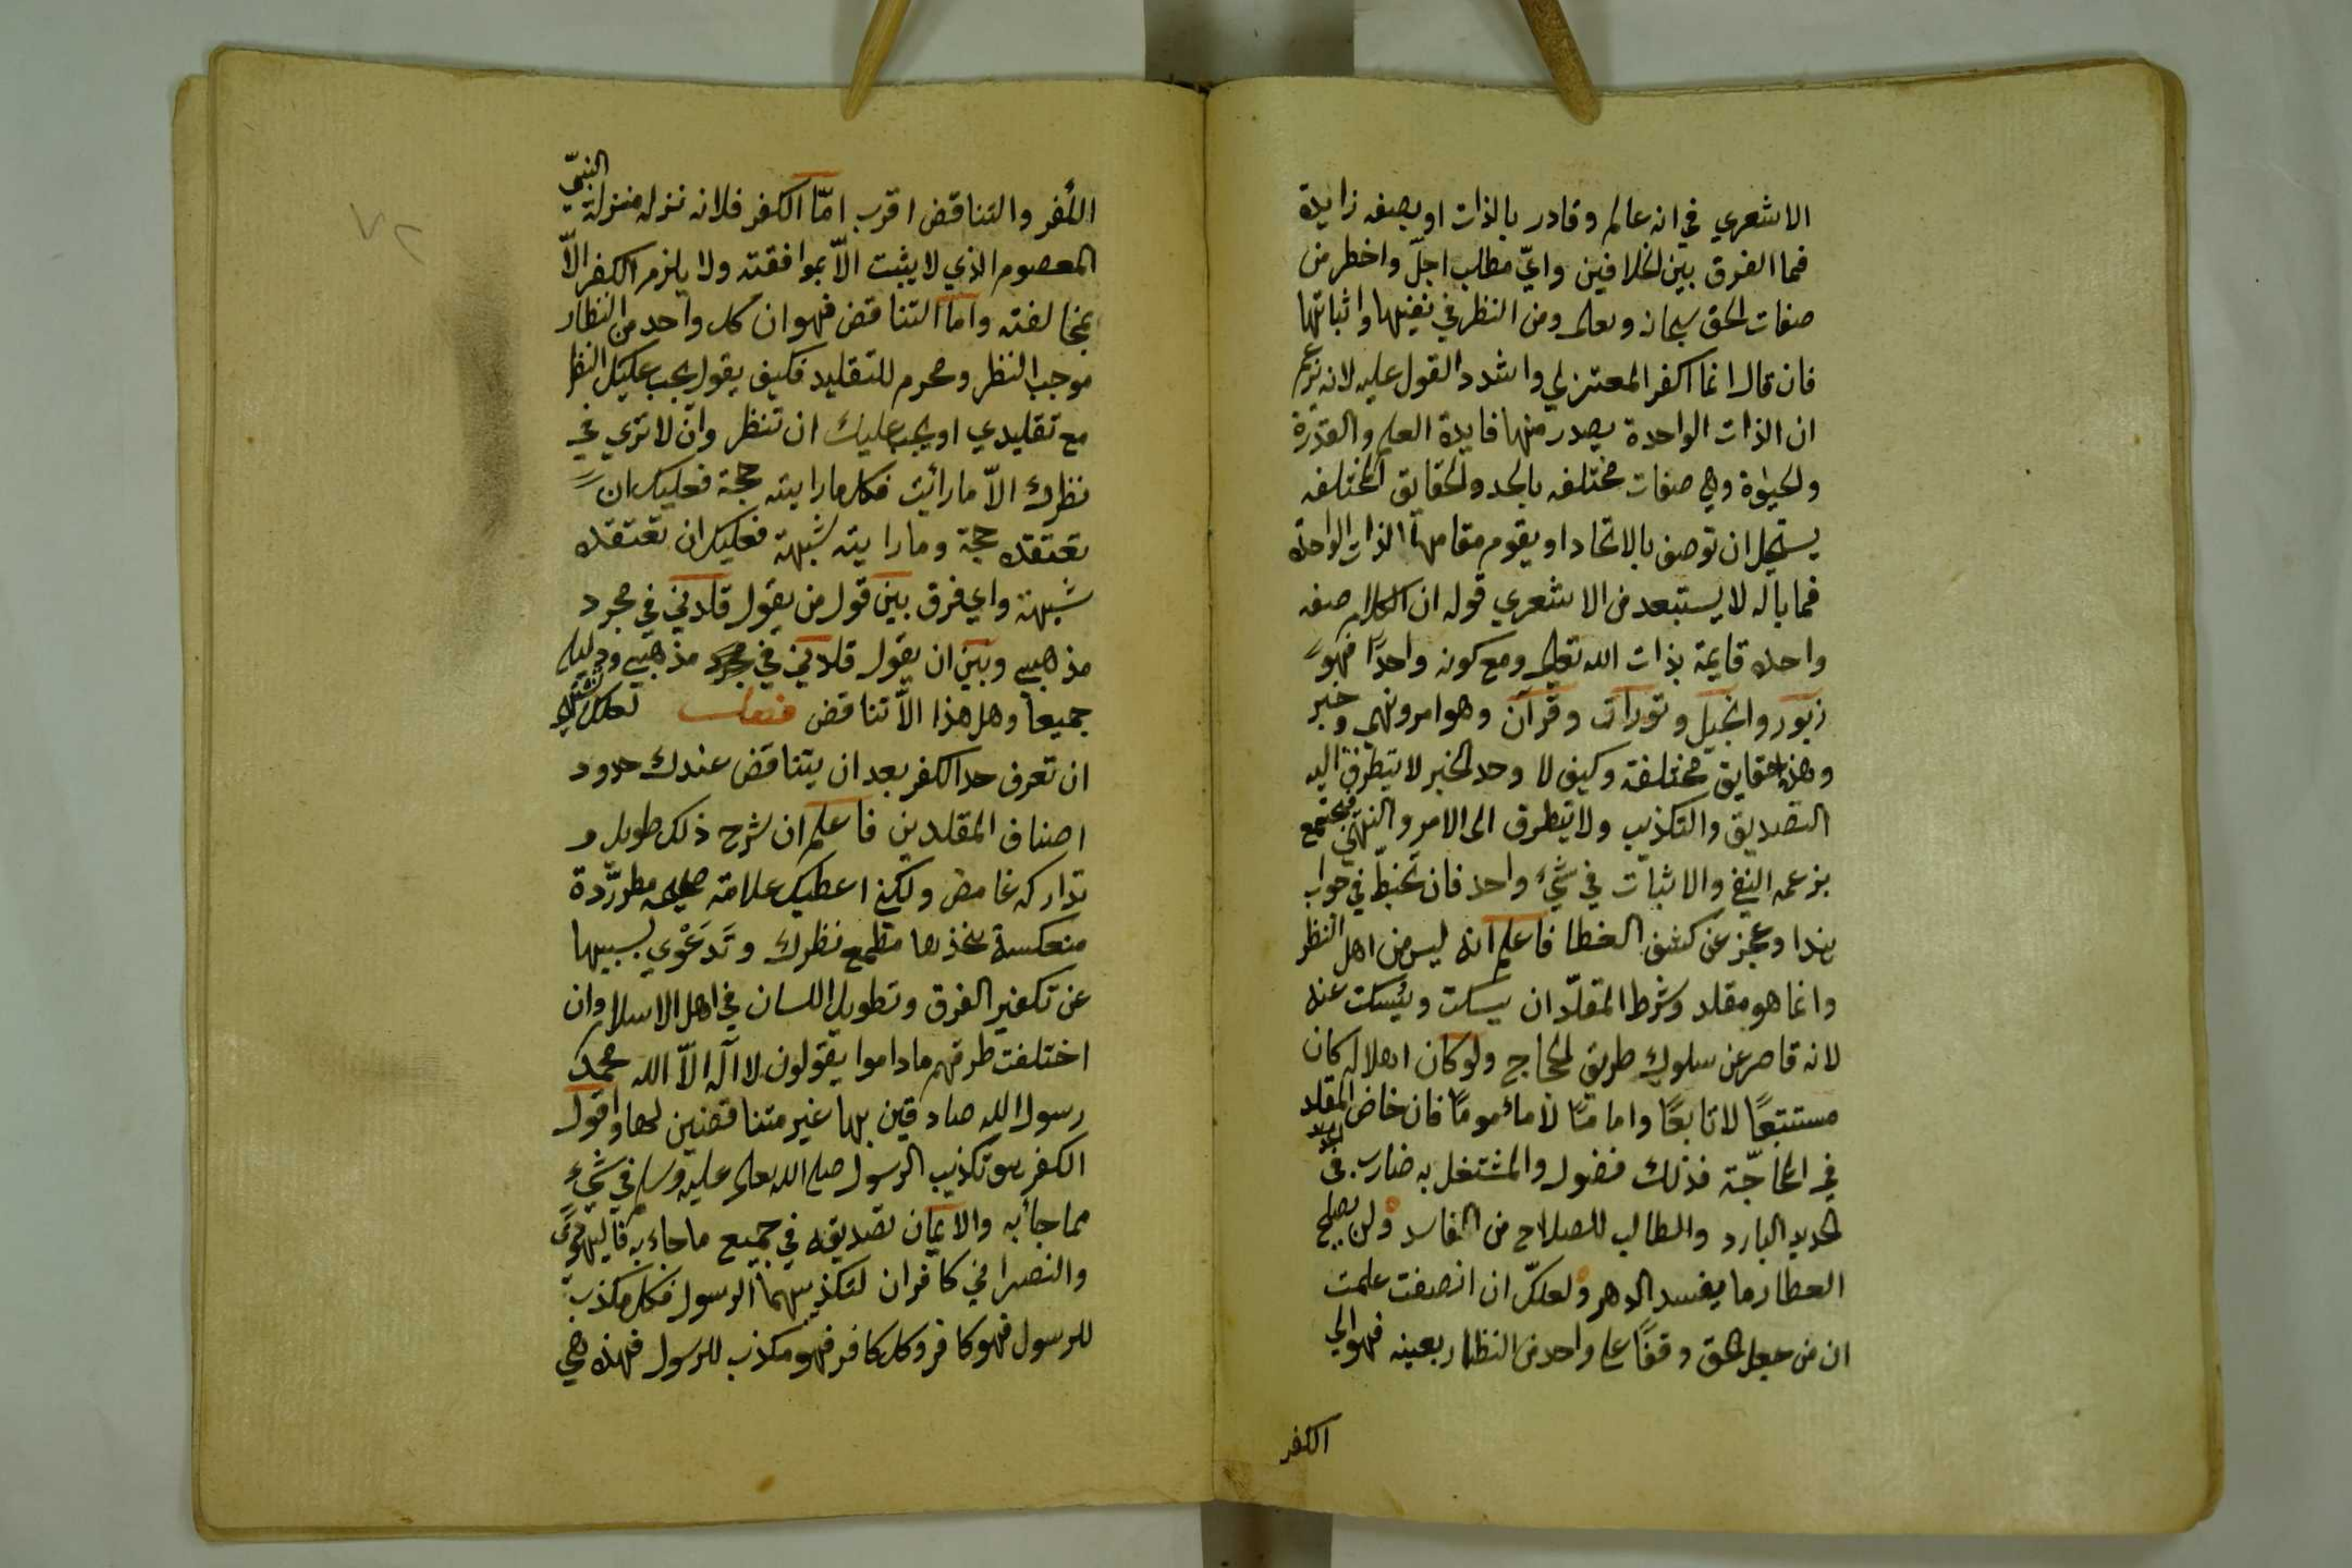 الاشعري في انه عالم وقادر بالذات او بصفه زايدة
فما الفرق بين الخلافين وايّ مطلب اجلّ واخطر من
صفات الحق سبحانه وتعالى ومن النظر في نفيها واثباتها
فان قال انما اكفر المعتزلي واشدد القول عليه لانه يزعم
ان الذات الواحدة يصدر منها فايدة العلم والقدرة
والحيوة وهي صفات مختلفه بالحد والحقايق المختلفه
يستحيل ان توصف بالاتحاد او يقوم مقامها الذات الواحدة
فما باله لا يستبعد من الاشعري قوله ان الكلام صفه
واحده قايمة بذات الله تعالى ومع كونه واحدًا فهو
زبور وانجيل وتورات وقرآن وهو امر ونهي وخبر
وهذه حقايق مختلفة وكيف لا وحد الخبر لا يتطرق اليه
التصديق والتكذيب ولا يتطرق الى الامر والنهي فيجتمع
بزعمه النفي والاثبات في شيء واحد فان تخبطّ في جواب
هذا وعجز عن كشف الغطا فاعلم انه ليس من اهل النظر
وانما هو مقلد وشرط المقلّد ان يسكت ويُسكت عنه
لانه قاصر عن سلوك طريق الحجاج ولو كان اهلا له كان
مستتبعًا لا تابعًا واماما لا مأمومًا فان خاض المقلد
في المحاجّة فذلك فضول والمشتغل به ضارب في
الحديد البارد والطالب للصلاح من الفاسد ولن يصلح
العطار ما يفسد الدهر ولعلكّ ان انصفت علمت
ان من جعل الحق وقفًا على واحد من النظار بعينه فهو الى
الكفر
النبيّ
الكفر والتناقض اقرب امّا الكفر فلانه نزله منزلة
المعصوم الذي لا يثبت الاّ بموافقته ولا يلزم الكفر الاّ
بمخالفته واما التناقض فهو ان كل واحد من النظار
موجب النظر ومحرم للتقليد فكيف يقول يجب عليك النظر
مع تقليدي او يجب عليك ان تنظر وان لا تري في
نظرك الاّ ما رأيت فكل ما رايته حجة فعليك ان
تعتقده حجة وما رايته شبهة فعليك ان تعتقده
شبهة واي فرق بين قول من يقول قلدني في مجرد
مذهبي وبين ان يقول قلدني في مذهبي ودليله
جميعا وهل هذا الاّ تناقض لعلك تشتهي
ان تعرف حد الكفر بعد ان يتناقض عندك حدود
اصناف المقلدين فاعلم ان شرح ذلك طويل و
تداركه غامض ولكني اعطيك علامة صحيحه مطرّدة
منعكسة لتتخذها مطمح نظرك وتدعوي بسببها
عن تكفير الفرق وتطويل اللسان في اهل الاسلام وان
اختلفت طرقهم ما داموا يقولون لا آله الاّ الله محمد
رسول الله صادقين بها غير متناقضين لها واقول
الكفر هو تكذيب الرسول صلى الله تعالى عليه وسلم في شيء
مما جأ به والايمان تصديقه في جميع ما جاء به فاليهودي
والنصراني كافران لتكذيبهما الرسول فكل مكذب
للرسول فهو كافر وكل كافر فهو مكذب للرسول فهذه هي